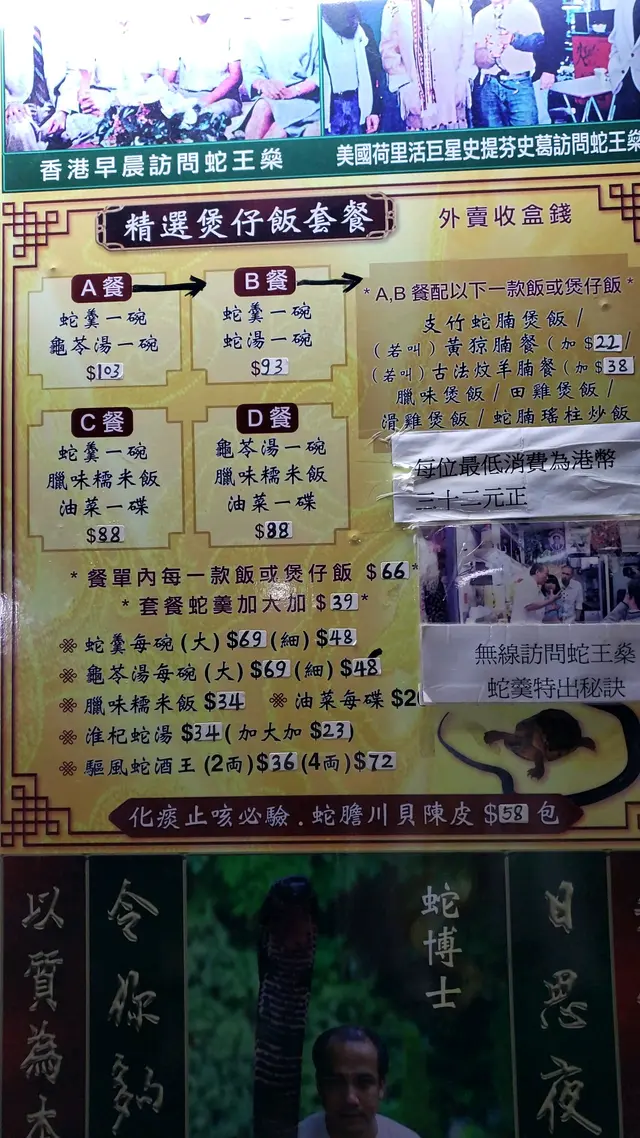 香港早晨訪問蛇王燊
美國荷里活巨星史提芬史葛訪問蛇王燊
精選煲仔飯套餐
外賣收盒錢
A餐
蛇羹一碗
龜苓湯一碗
$103
B餐
蛇羹一碗
蛇湯一碗
$93
*A,B餐配以下一款飯或煲仔飯*
支竹蛇腩煲飯/
(若叫)黃猄腩餐(加$22/
(若叫)古法炆羊腩餐(加$38
臘味煲飯/田雞煲飯/
滑雞煲飯/蛇腩瑤柱炒飯
C餐
蛇羹一碗
臘味糯米飯
油菜一碟
$88
D餐
龜苓湯一碗
臘味糯米飯
油菜一碟
$88
每位最低消費為港幣
三十二元正
*餐單內每一款飯或煲仔飯 $66*
*套餐蛇羹加大加$39*
蛇羹每碗(大)$69(細)$48
龜苓湯每碗(大)$69(細)$48
臘味糯米飯$34 油菜每碟$2
淮杞蛇湯$34(加大加$23)
驅風蛇酒王(2両)$36(4両)$72
無線訪問蛇王燊
蛇羹特出秘訣
化痰止咳必驗.蛇膽川貝陳皮$58包
以質為本
令你夠
蛇博士
日思夜